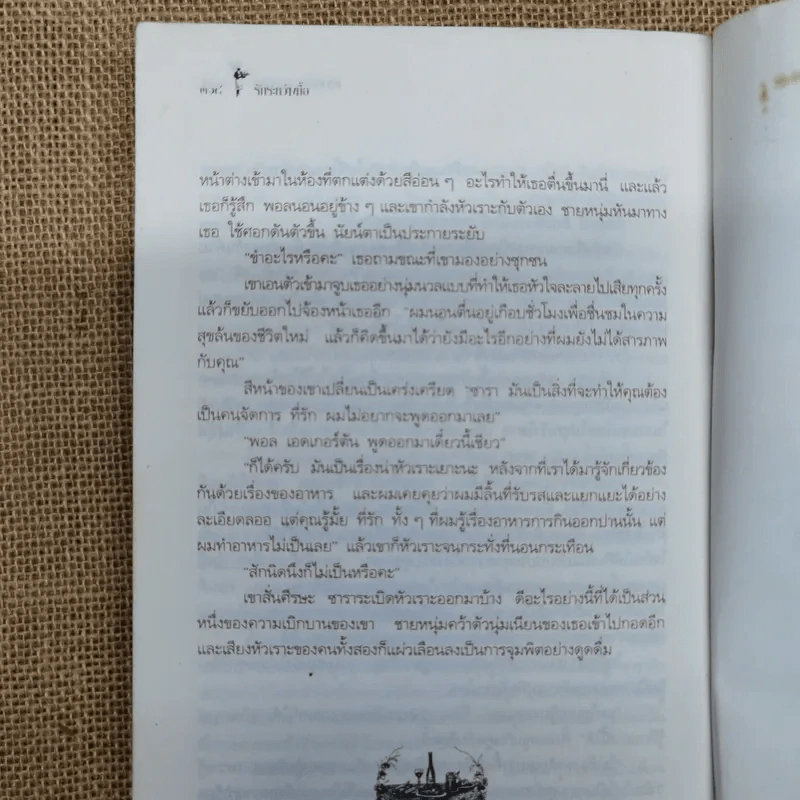 ๓๖๔ รักระหว่างมื้อ
หน้าต่างเข้ามาในห้องที่ตกแต่งด้วยสีอ่อน ๆ อะไรทำให้เธอตื่นขึ้นมานี่ และแล้ว
เธอก็รู้สึก พอลนอนอยู่ข้าง ๆ และเขากำลังหัวเราะกับตัวเอง ชายหนุ่มหันมาทาง
เธอ ใช้ศอกดันตัวขึ้น นัยน์ตาเป็นประกายระยับ
"ขำอะไรหรือคะ" เธอถามขณะที่เขามองอย่างซุกซน
เขาเอนตัวเข้ามาจูบเธออย่างนุ่มนวลแบบที่ทำให้เธอหัวใจละลายไปเสียทุกครั้ง
แล้วก็ขยับออกไปจ้องหน้าเธออีก "ผมนอนตื่นอยู่เกือบชั่วโมงเพื่อชื่นชมในความ
สุขล้นของชีวิตใหม่ แล้วก็คิดขึ้นมาได้ว่ายังมีอะไรอีกอย่างที่ผมยังไม่ได้สารภาพ
กับคุณ"
สีหน้าของเขาเปลี่ยนเป็นเคร่งเครียด "ซารา มันเป็นสิ่งที่จะทำให้คุณต้อง
เป็นคนจัดการ ที่รัก ผมไม่อยากจะพูดออกมาเลย"
"พอล เอดเกอร์ตัน พูดออกมาเดี๋ยวนี้เชียว"
"ก็ได้ครับ มันเป็นเรื่องน่าหัวเราะเยาะนะ หลังจากที่เราได้มารู้จักเกี่ยวข้อง
กันด้วยเรื่องของอาหาร และผมเคยคุยว่าผมมีลิ้นที่รับรสและแยกแยะได้อย่าง
ละเอียดลออ แต่คุณรู้มั้ย ที่รัก ทั้ง ๆ ที่ผมรู้เรื่องอาหารการกินออกปานนั้น แต่
ผมทำอาหารไม่เป็นเลย" แล้วเขาก็หัวเราะจนกระทั่งที่นอนกระเทือน
"สักนิดนึงก็ไม่เป็นหรือคะ"
เขาสั่นศีรษะ ซาราระเบิดหัวเราะออกมาบ้าง ดีอะไรอย่างนี้ที่ได้เป็นส่วน
หนึ่งของความเบิกบานของเขา ชายหนุ่มคว้าตัวนุ่มเนียนของเธอเข้าไปกอดอีก
และเสียงหัวเราะของคนทั้งสองก็แผ่วเลือนลงเป็นการจุมพิตอย่างดูดดื่ม